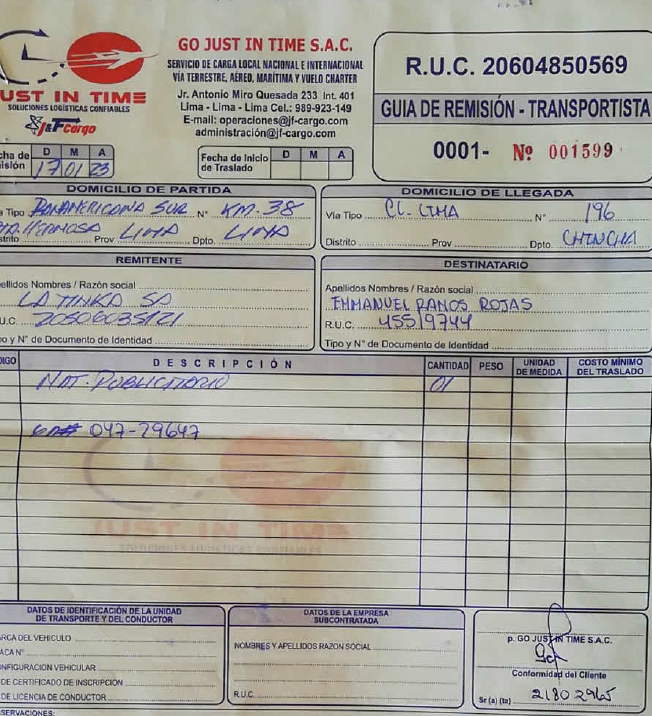 GO JUST IN TIME S.A.C.
SERVICIO DE CARGA LOCAL NACIONAL E INTERNACIONAL
VÍA TERRESTRE, AÉREO, MARÍTIMA Y VUELO CHARTER
Jr. Antonio Miro Quesada 233 Int. 401
Lima - Lima - Lima Cel.: 989-923-149
E-mail: operaciones@jf-cargo.com
administración@jf-cargo.com
UST IN TIME
SOLUCIONES LOGÍSTICAS CONFIABLES
J&F Cargo
R.U.C. 20604850569
GUIA DE REMISIÓN - TRANSPORTISTA
0001- Nº 001599
cha de
isión
D M A
17 01 23
Fecha de Inicio
de Traslado
D M A
DOMICILIO DE PARTIDA
a Tipo PANAMERICANA SUR N° KM. 38
strito HERMOSA Prov LIMA Dpto. LIMA
DOMICILIO DE LLEGADA
Vía Tipo CL. LIMA N° 196
Distrito Prov Dpto. CHINCHA
REMITENTE
ellidos Nombres / Razón social
LA TINKA SA
U.C. 20506035121
po y N° de Documento de Identidad
DESTINATARIO
Apellidos Nombres / Razón social
EMMANUEL RAMOS ROJAS
R.U.C. 45519744
Tipo y N° de Documento de Identidad
DIGO DESCRIPCIÓN CANTIDAD PESO UNIDAD DE MEDIDA COSTO MÍNIMO DEL TRASLADO
MAT. PUBLICITARIO 01
GR# 047-29647
JUST IN TIME
SOLUCIONES LOGÍSTICAS CONFIABLES
DATOS DE IDENTIFICACIÓN DE LA UNIDAD
DE TRANSPORTE Y DEL CONDUCTOR
ARCA DEL VEHICULO
ACA N°
NFIGURACION VEHICULAR
DE CERTIFICADO DE INSCRIPCION
DE LICENCIA DE CONDUCTOR
DATOS DE LA EMPRESA
SUBCONTRATADA
NOMBRES Y APELLIDOS RAZON SOCIAL
R.U.C.
p. GO JUST IN TIME S.A.C.
Conformidad del Cliente
Sr (a) (ta) 2180 2965
SERVACIONES: